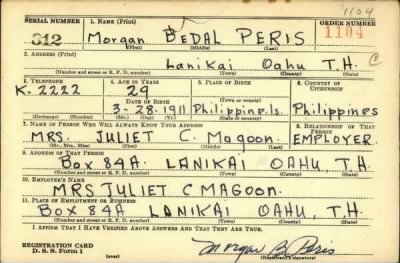 1104
SERIAL NUMBER 1. NAME (Print) ORDER NUMBER
312 Morgan BEDAL PERIS 1104
(First) (Middle) (Last)
2. ADDRESS (Print)
Lanikai Oahu T.H. C
(Number and street or R. F. D. number) (Town) (County) (State)
3. TELEPHONE 4. AGE IN YEARS 5. PLACE OF BIRTH 6. COUNTRY OF CITIZENSHIP
K-2222 29
DATE OF BIRTH (Town or county)
3-28-1911 Philipine.Is. Philippines
(Exchange) (Number) (Mo.) (Day) (Yr.) (State or country)
7. NAME OF PERSON WHO WILL ALWAYS KNOW YOUR ADDRESS 8. RELATIONSHIP OF THAT PERSON
MRS. JULIET C. Magoon. EMPLOYER.
(Mr., Mrs., Miss) (First) (Middle) (Last)
9. ADDRESS OF THAT PERSON
Box 84A. LANIKAI OAHU, T.H.
(Number and street or R. F. D. number) (Town) (County) (State)
10. EMPLOYER'S NAME
MRS JULIET C MAGOON.
11. PLACE OF EMPLOYMENT OR BUSINESS
Box 84A LANIKAI OAHU, T.H.
(Number and street or R. F. D. number) (Town) (County) (State)
I AFFIRM THAT I HAVE VERIFIED ABOVE ANSWERS AND THAT THEY ARE TRUE.
REGISTRATION CARD
D. S. S. Form 1 (over) Morgan B. Peris
(Registrant's signature)